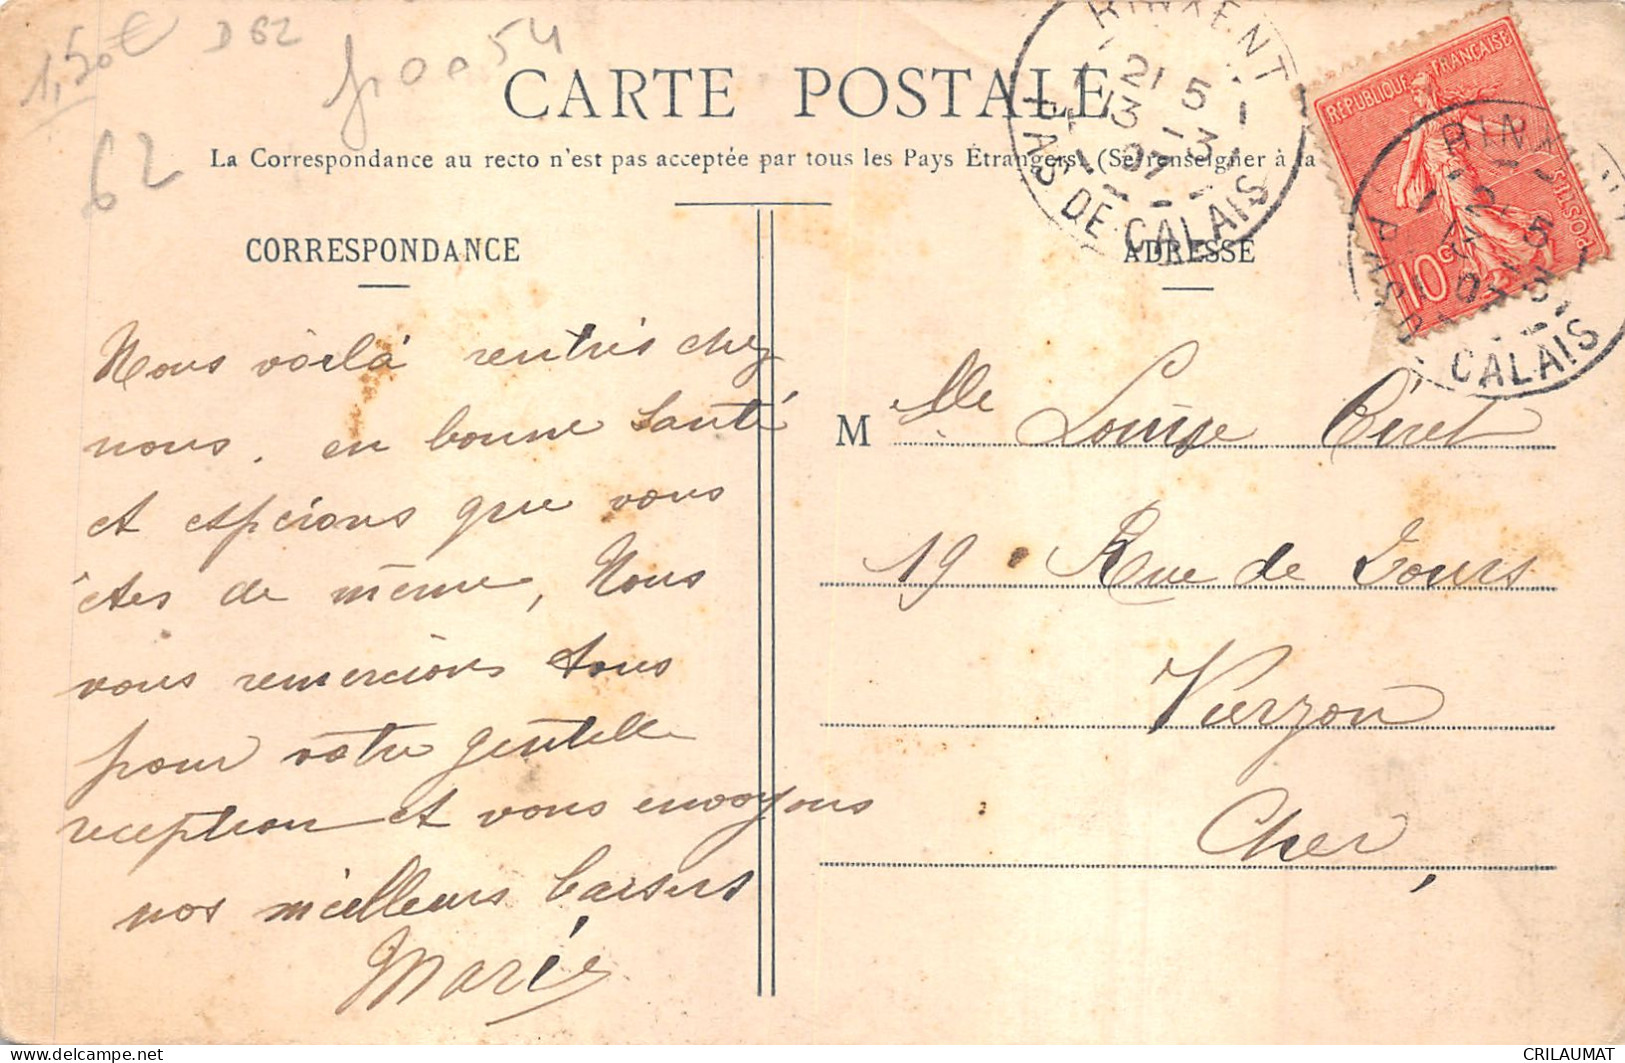 1,50€ D62
fr0054
62
CARTE POSTALE
La Correspondance au recto n'est pas acceptée par tous les Pays Étrangers. (Se renseigner à la
CORRESPONDANCE
ADRESSE
RINXENT
21 5
13 - 3
07
PAS DE CALAIS
REPUBLIQUE FRANÇAISE
POSTES
10c
RINX
21 5
CALAIS
Nous voilà rentrés chez
nous. en bonne santé
et espérons que vous
êtes de même, Nous
vous remercions tous
pour votre gentille
reception et vous envoyons
nos meilleurs baisers
Marie
Mlle Louise
19 Rue de Tours
Vierzon
Cher,
delcampe.net
CRILAUMAT